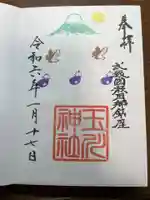 奉拝
武蔵國荏原郡鎮座
玉川
神社
令和六年一月十七日